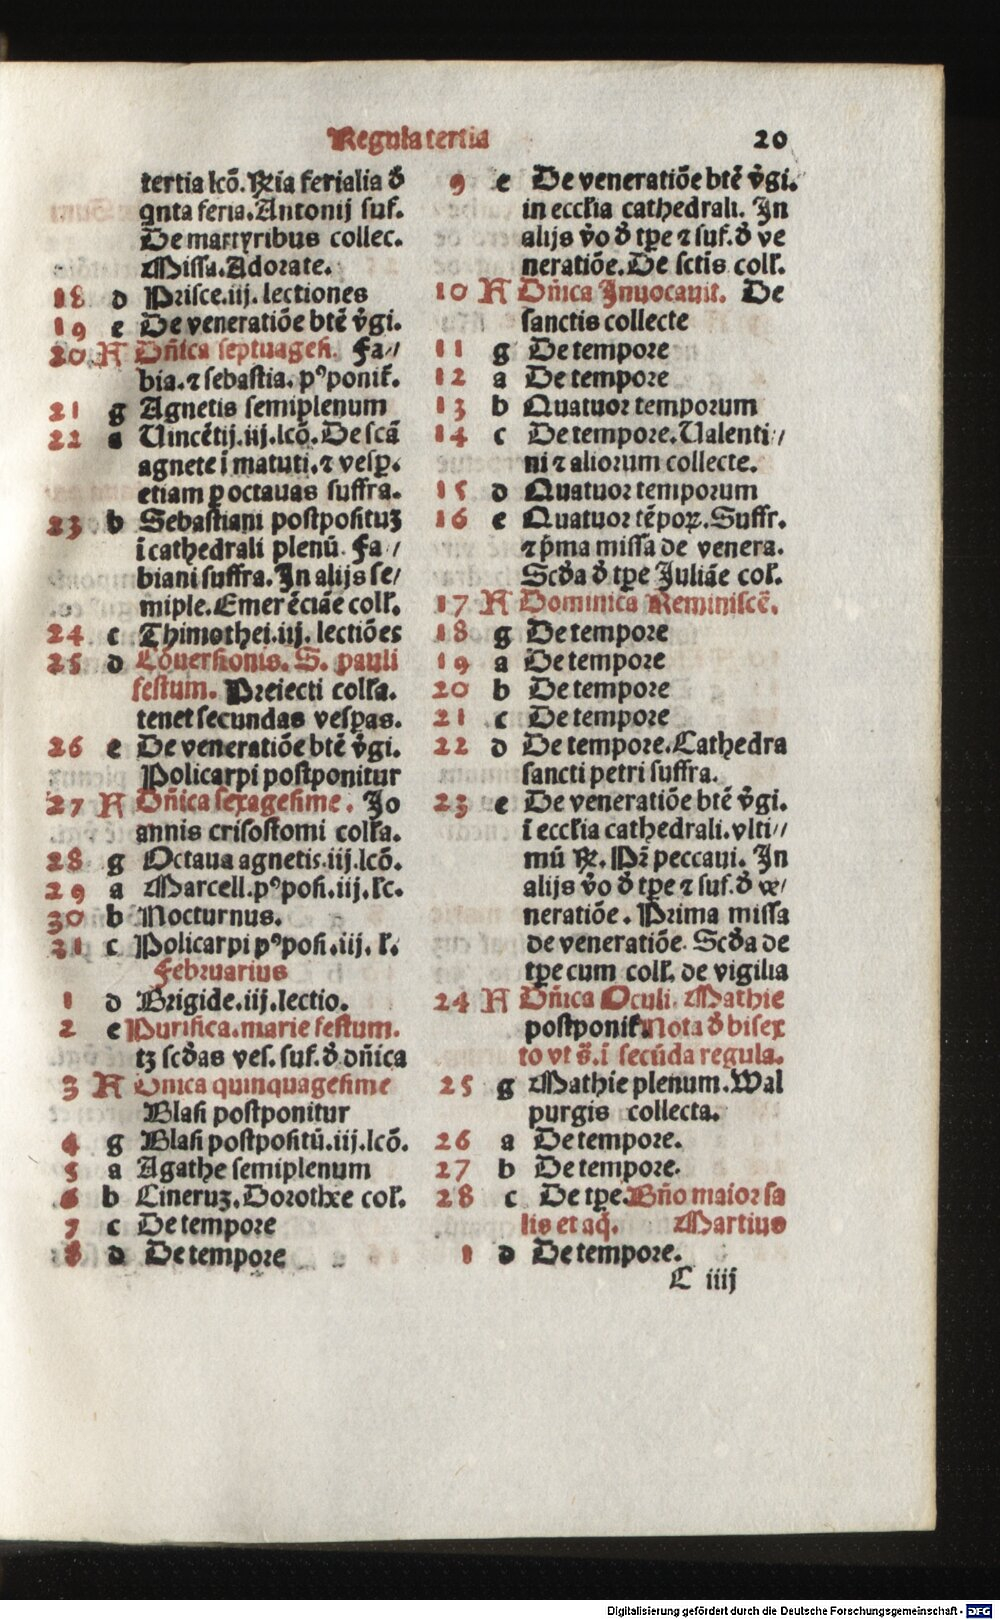 Regula tertia 20
tertia lcō. R̄ia ferialia đ
qnta feria. Antonij suf.
De martyribus collec.
Missa. Adorate.
18 d Prisce. iij. lectiones
19 e De veneratiōe btē v̄gi.
20 A Dn̄ica septuages. Fa⸗
bia. ⁊ sebastia. pꝰponit̄.
21 g Agnetis semiplenum
22 a Uincētij. iij. lcō. De scā
agnete ī matuti. ⁊ vesp̄.
etiam ꝑ octauas suffra.
23 b Sebastiani postposituꝫ
ī cathedrali plenū. Fa⸗
biani suffra. In alijs se⸗
miple. Emerēciāe coll̄.
24 c Thimothei. iij. lectiōes
25 d Cōuersionis. S. pauli
festum. Preiecti coll̄a.
tenet secundas vesꝑas.
26 e De veneratiōe btē v̄gi.
Policarpi postponitur
27 A Dn̄ica sexagesime. Jo
annis crisostomi coll̄a.
28 g Octaua agnetis. iij. lcō.
29 a Marcell. pꝰposi. iij. l̄c.
30 b Nocturnus.
31 c Policarpi pꝰposi. iij. l̄.
Februarius
1 d Brigide. iij. lectio.
2 e Purifica. marie festum.
tꝫ scđas ves. suf. đ dn̄ica
3 A Dnica quinquagesime
Blasi postponitur
4 g Blasi postpositū. iij. lcō.
5 a Agathe semiplenum
6 b Cineruꝫ. Dorothee col̄.
7 c De tempore
8 d De tempore
9 e De veneratiōe btē v̄gi.
in eccl̄ia cathedrali. In
alijs v̄o đ tꝑe ⁊ suf. đ ve
neratiōe. De sctīs coll̄.
10 A Dn̄ica Inuocauit. De
sanctis collecte
11 g De tempore
12 a De tempore
13 b Quatuor temporum
14 c De tempore. Ualenti⸗
ni ⁊ aliorum collecte.
15 d Quatuor temporum
16 e Quatuor tēpoꝝ. Suffr.
⁊ p̄ma missa de venera.
Scđa đ tꝑe Juliāe col̄.
17 A Dominica Reminiscē.
18 g De tempore
19 a De tempore
20 b De tempore
21 c De tempore
22 d De tempore. Cathedra
sancti petri suffra.
23 e De veneratiōe btē v̄gi.
ī eccl̄ia cathedrali. vlti⸗
mū R̄. Pr̄ peccaui. In
alijs v̄o đ tꝑe ⁊ suf. đ ve⸗
neratiōe. Prima missa
de veneratiōe. Scđa de
tꝑe cum coll̄. de vigilia
24 A Dn̄ica Oculi. Mathie
postponit̄. Nota đ bisex
to vt s̄. ī secūda regula.
25 g Mathie plenum. Wal
purgis collecta.
26 a De tempore.
27 b De tempore.
28 c De tꝑe. Bn̄o maior sa
lis et aq̄. Martius
1 d De tempore.
C iiij
Digitalisierung gefördert durch die Deutsche Forschungsgemeinschaft - DFG